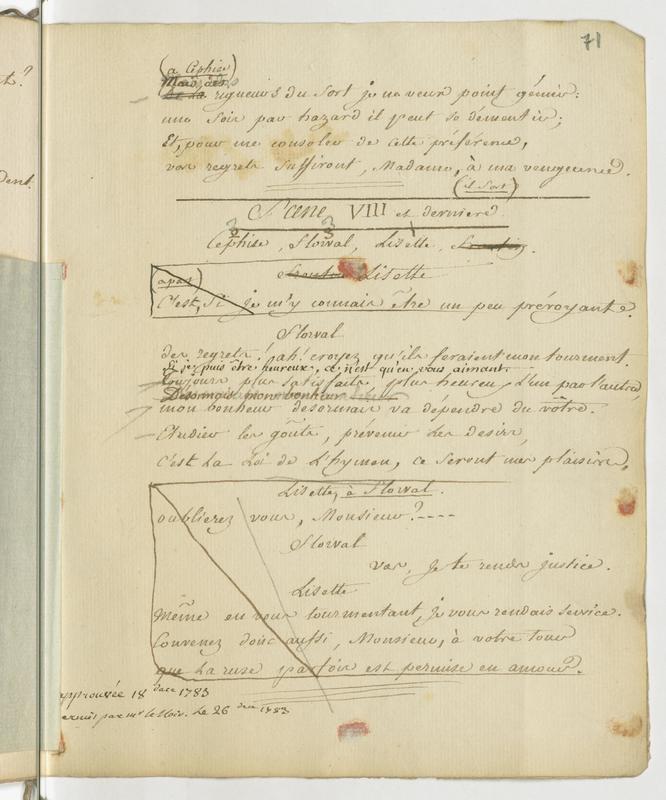 71
(a Cephise)
Mais des
De la rigueurs du Sort je ne veux point gémir:
un Soir par hazard il peut se démentir;
Et, pour me consoler de cette préférence,
vos regrets Suffiront, Madame, à ma vengeance.
(il Sort)
Scene VIII et derniere.
3 3 1
Cephise, Florval, Lisette, Frontin.
Frontin Lisette
apart)
C'est, Si je m'y connais être un peu prévoyante.
Florval
des regrets! ah! croyez qu'ils feraient mon tourment.
Si je puis être heureux, ce n'est qu'en vous aimant.
toujours plus satisfaits, plus heureux l'un par l'autre,
Desormais mon bonheur
mon bonheur desormais va dépendre du vôtre.
Etudier les goûts, prévenir les desirs,
C'est la Loi de L'hymen, ce seront mes plaisirs,
Lisette, à Florval.
oublierez vous, Monsieur?----
Florval
va, je te rends justice.
Lisette
Même en vous tourmentant je vous rendais service.
Convenez donc aussi, Monsieur, à votre tour
que la ruse parfois est permise en amour.
approuvée 18 1783
permis par mr le Noir. Le 26 1783
t?
dent.